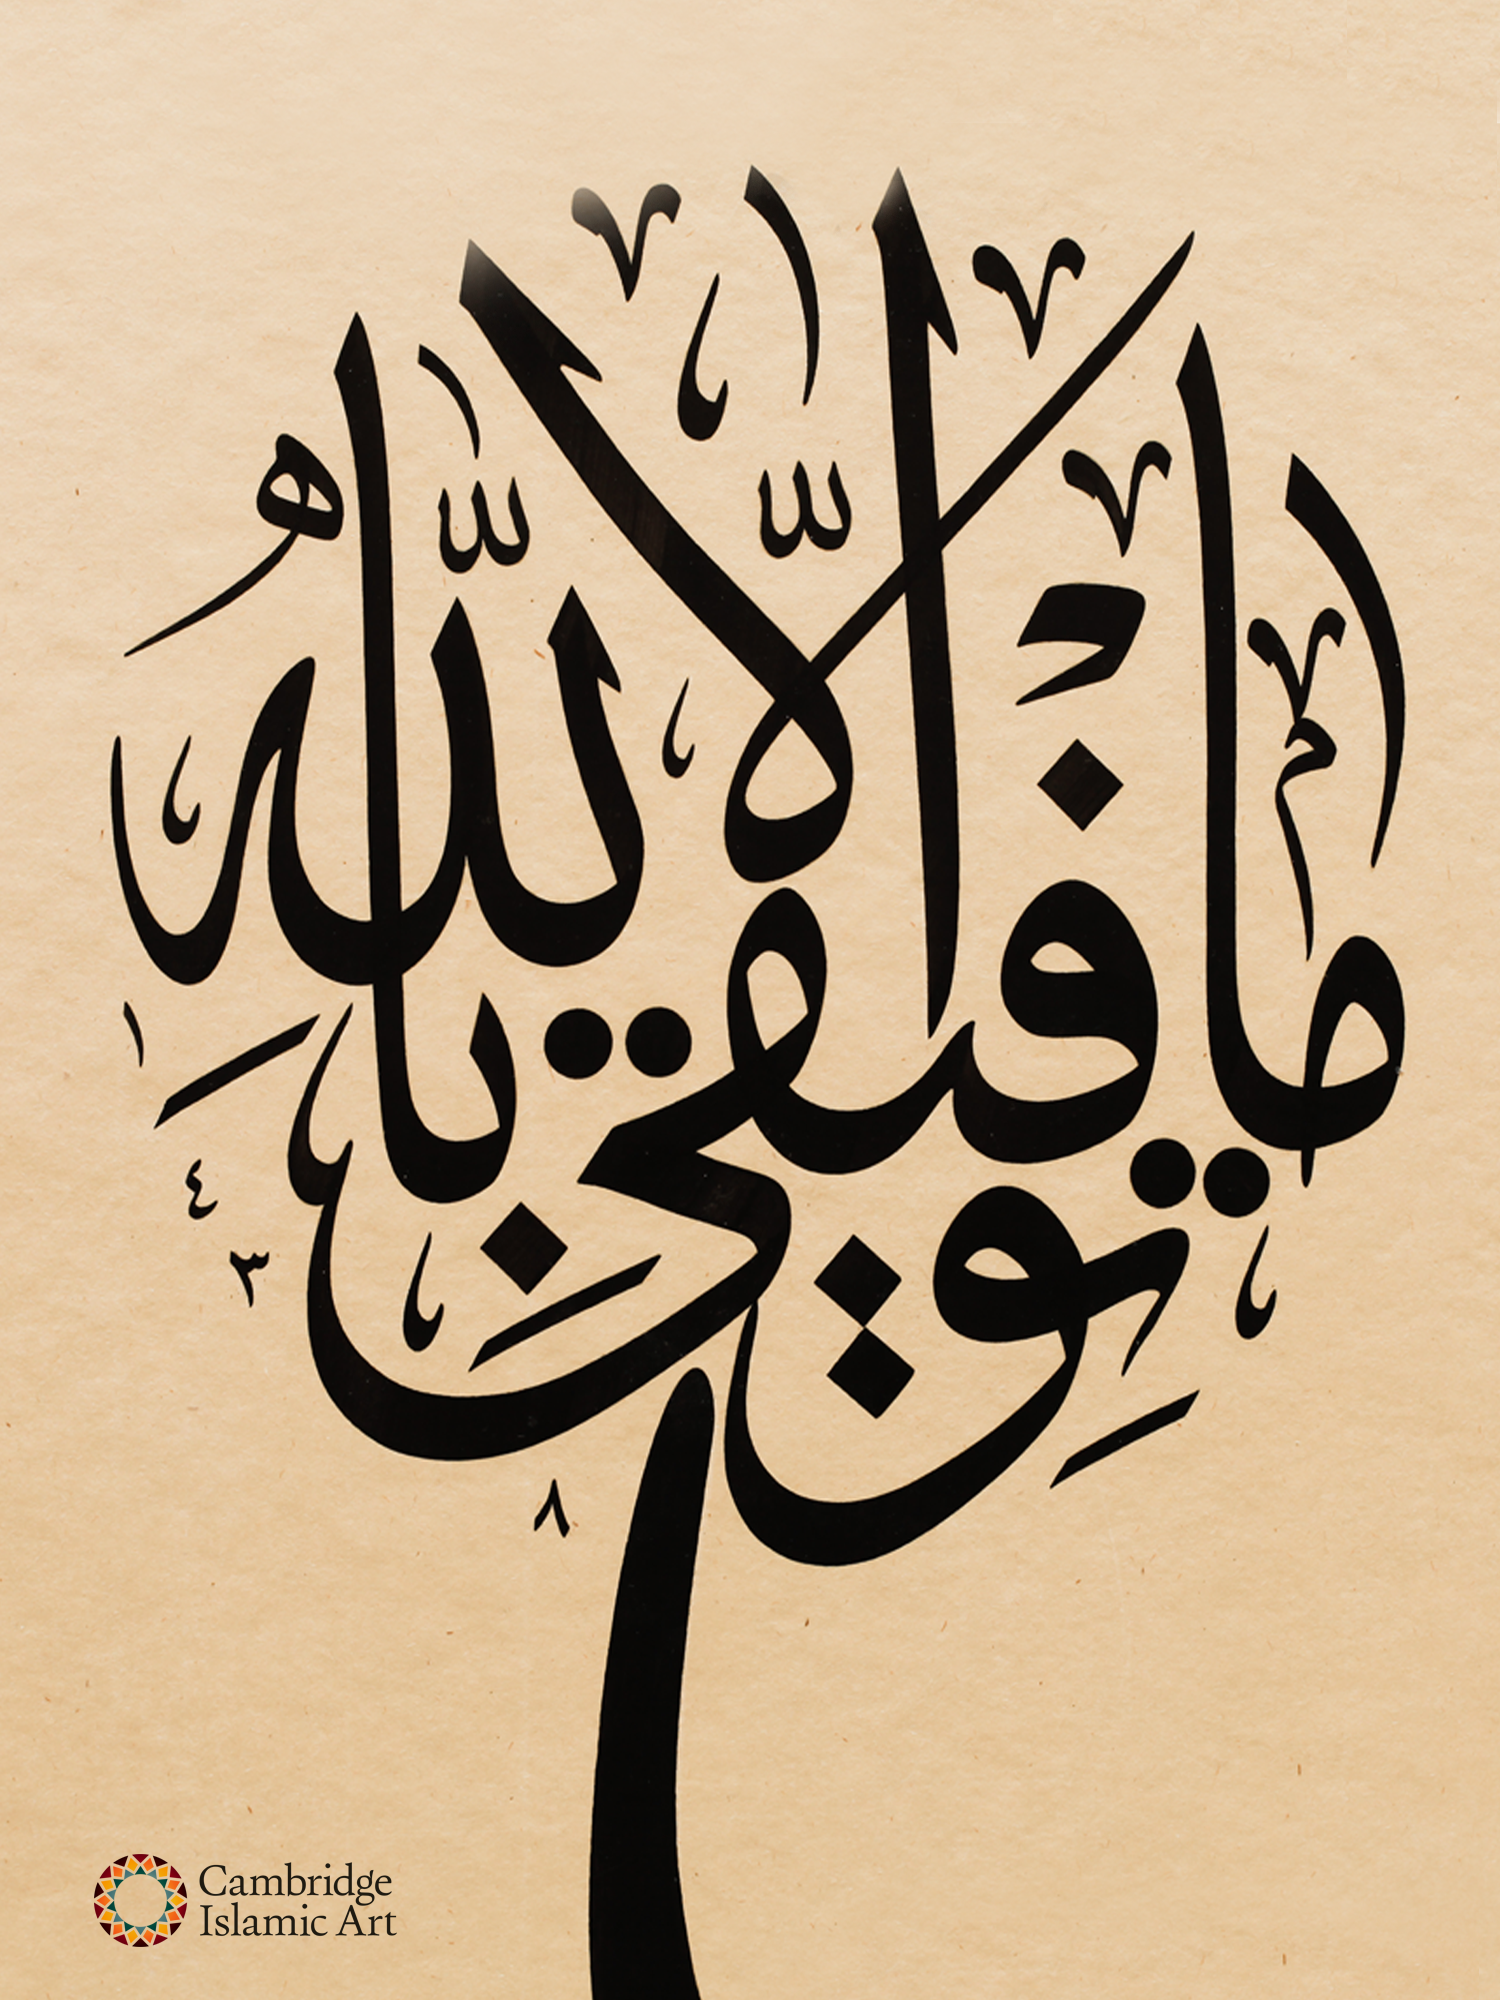 وما توفيقي إلا بالله
١٤٣٨
Cambridge
Islamic Art